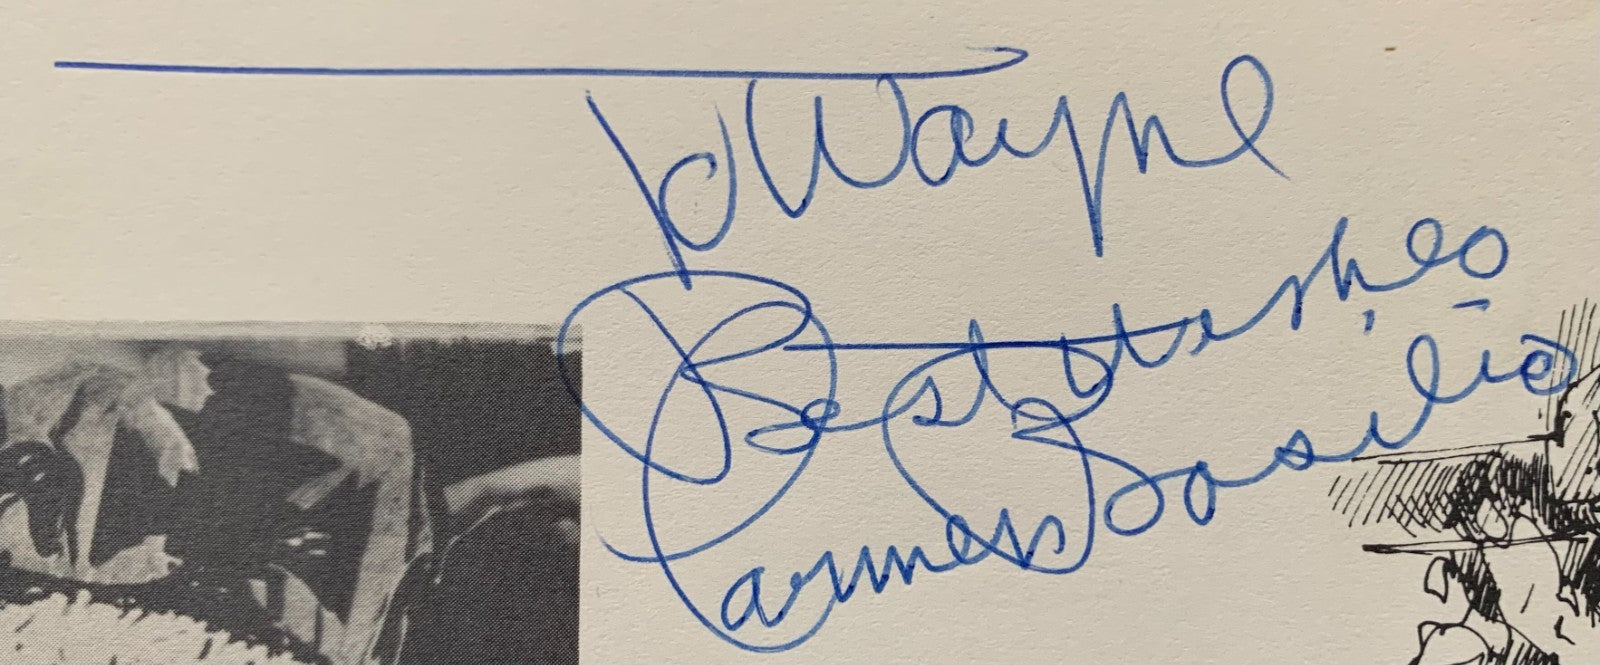 To Wayne
Best Wishes
Carmen Basilio